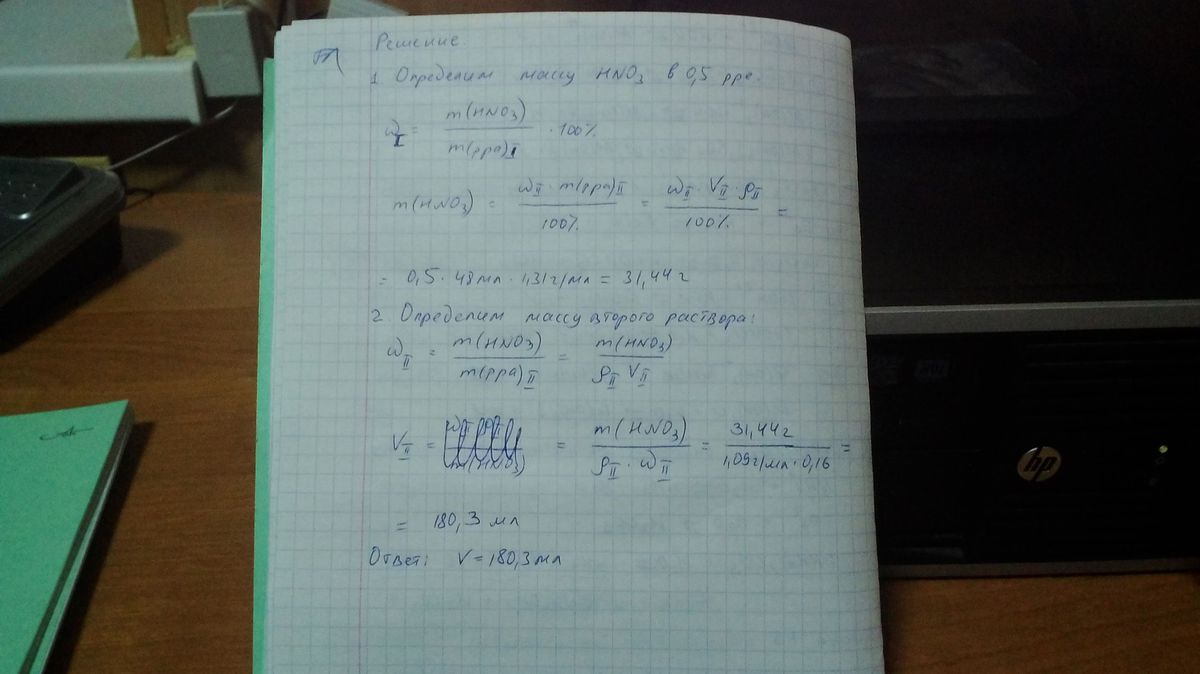 Решение
1. Определим массу HNO₃ в 0,5 рре.
ω_I = m(HNO₃) / m(рра)_I · 100%
m(HNO₃) = ω_II · m(рра)_II / 100% = ω_II · V_II · ρ_II / 100% =
= 0,5 · 48мл · 1,31г/мл = 31,44г
2. Определим массу второго раствора:
ω_II = m(HNO₃) / m(рра)_II = m(HNO₃) / ρ_II V_II
V_II = = m(HNO₃) / ρ_II · ω_II = 31,44г / 1,09г/мл · 0,16 =
= 180,3 мл
Ответ: V = 180,3мл
hp